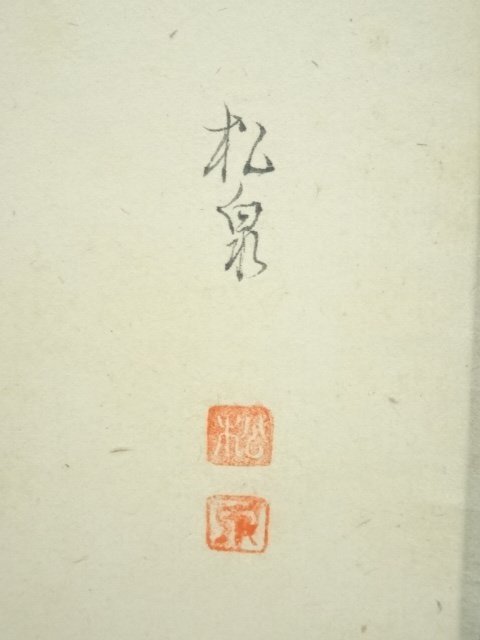 松泉
松
泉